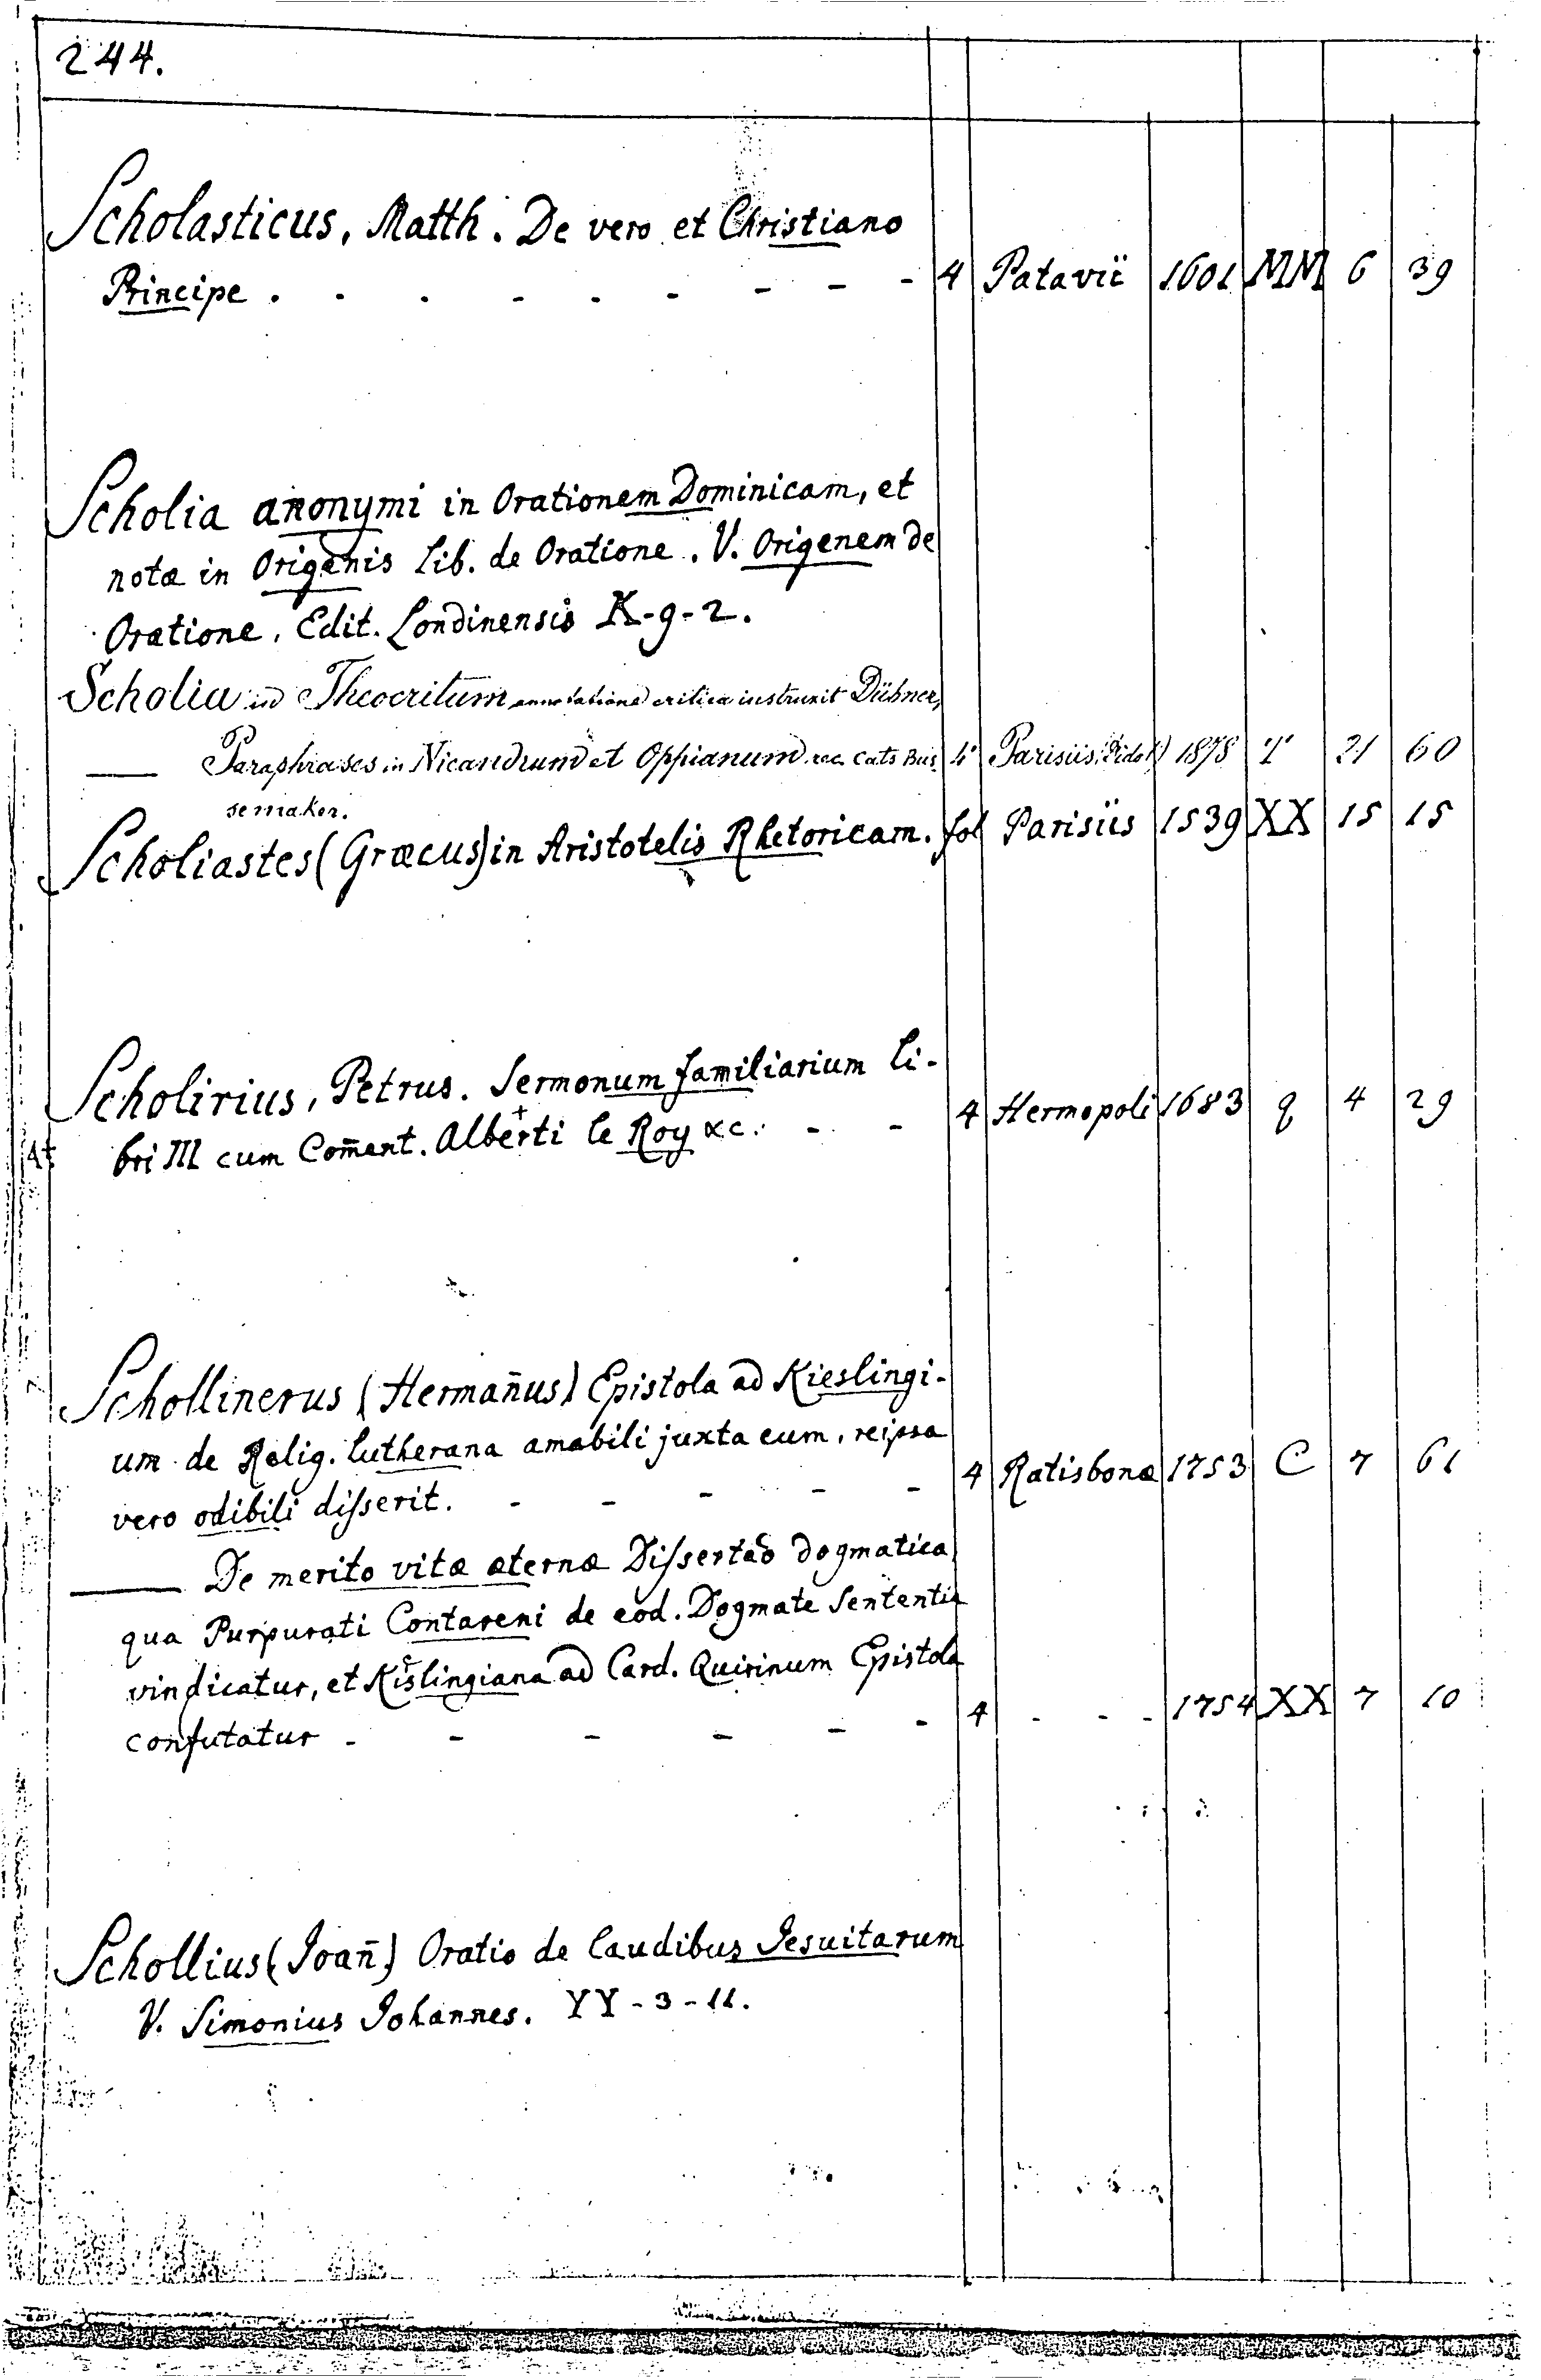 244.
Scholasticus, Matth. De vero et Christiano
Principe . - - - - - - - - 4 Patavii 1601 MM 6 39
Scholia anonymi in Orationem Dominicam, et
notæ in Origenis Lib. de Oratione. V. Origenem de
Oratione, Edit. Londinensis K-9-2.
Scholia in Theocritum annotatione critica instruxit Dübner,
—— Paraphrases in Nicandrum et Oppianum rec. Cats Bus 4° Parisiis, Didot 1878 T 21 60
semaker.
Scholiastes (Græcus) in Aristotelis Rhetoricam. fol Parisiis 1539 XX 15 15
Scholirius, Petrus. Sermonum familiarium li-
bri III cum Com̄ent. Alberti le Roy &c. - - 4 Hermopoli 1683 q 4 29
Schollinerus (Herman̄us) Epistola ad Kieslingi-
um de Relig. Lutherana amabili juxta eum, reipsa
vero odibili disserit. - - - - - 4 Ratisbonæ 1753 C 7 61
—— De merito vitæ æternæ Dissertao dogmatica
qua Purpurati Contareni de eod. Dogmate Sententia
vindicatur, et Kislingiana ad Card. Quirinum Epistola
confutatur - - - - - - 4 - - - 1754 XX 7 10
Schollius (Joan̄) Oratio de laudibus Jesuitarum
V. Simonius Johannes. YY-3-11.